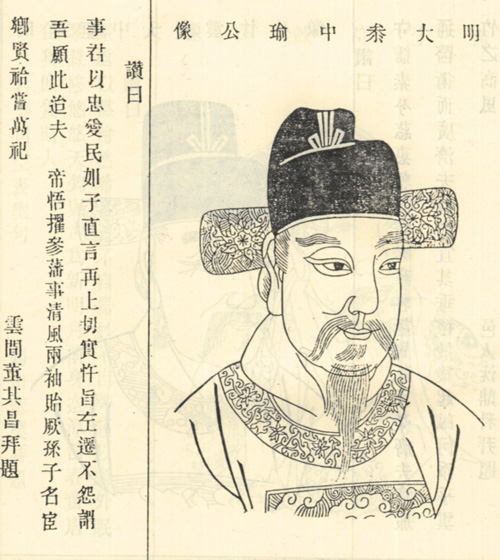 明大叅中瑜公像
讚曰
事君以忠愛民如子直言再上切實忤旨左遷不怨謂
吾願此迨夫 帝悟擢參藩事清風兩袖貽厥孫子名宦
鄉賢祫嘗萬祀 雲間董其昌拜題